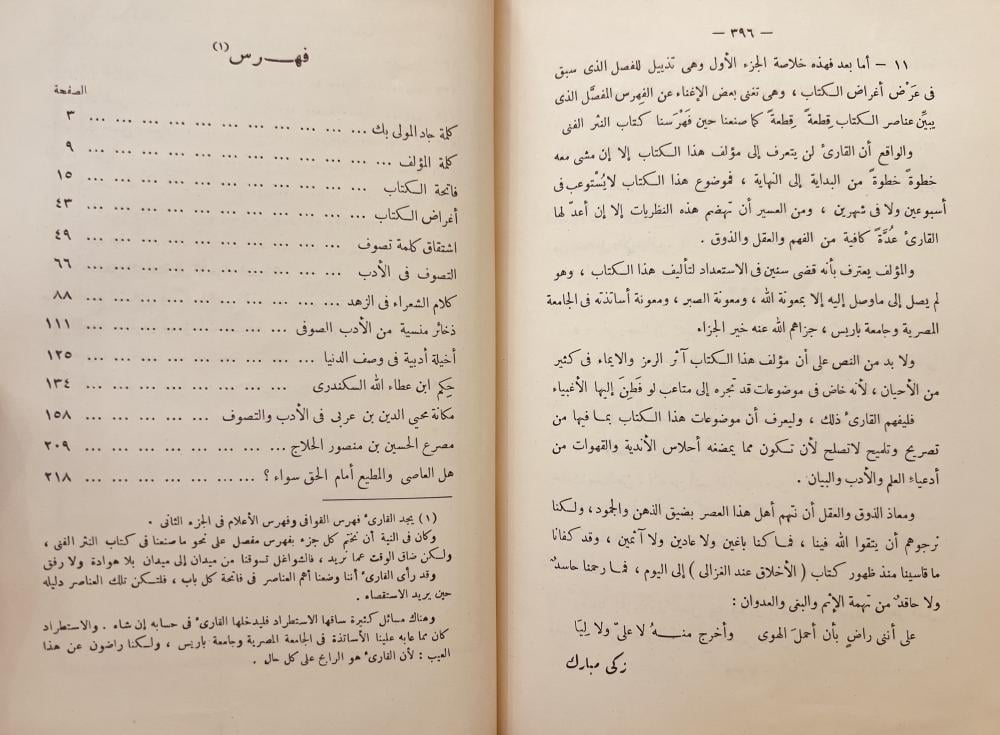 — ٣٩٦ —
١١ — أما بعد فهذه خلاصة الجزء الأول وهى تذييل للفصل الذى سبق
فى عَرْض أغراض الكتاب ، وهى تغنى بعض الإغناء عن الفِهرس المفصَّل الذى
يبيِّن عناصر الكتاب قِطعةً قِطعةً كما صنعنا حين فَهْرَسنا كتاب النثر الفنى
والواقع أن القارئ لن يتعرف إلى مؤلف هذا الكتاب إلا إن مشى معه
خطوةً خطوةً من البداية إلى النهاية ، فموضوع هذا الكتاب لايُسْتوعب فى
أسبوعين ولا فى شهرين ، ومن العسير أن تهضم هذه النظريات إلا إن أعدّ لها
القارئ عُدَّةً كافية من الفهم والعقل والذوق .
والمؤلف يعترف بأنه قضى سنين فى الاستعداد لتأليف هذا الكتاب ، وهو
لم يصل إلى ماوصل إليه إلا بمعونة الله ، ومعونة الصبر ، ومعونة أساتذته فى الجامعة
المصرية وجامعة باريس ، جزاهم الله عنه خير الجزاء
ولا بد من النص على أن مؤلف هذا الكتاب آثر الرمز والايماء فى كثير
من الأحيان ، لأنه خاض فى موضوعات قد تجره إلى متاعب لو فَطِنَ إليها الأغبياء
فليفهم القارئ ذلك ، وليعرف أن موضوعات هذا الكتاب بما فيها من
تصريح وتلميح لاتصلح لأن تكون مما يمضغه أحلاس الأندية والقهوات من
أدعياء العلم والأدب والبيان .
ومعاذ الذوق والعقل أن نتهم أهل هذا العصر بضيق الذهن والجمود ، ولكنا
نرجوهم أن يتقوا الله فينا ، فما كنا باغين ولا عادين ولا آثمين ، وقد كفانا
ما قاسينا منذ ظهور كتاب ( الأخلاق عند الغزالى ) إلى اليوم ، فما رحمنا حاسدٌ
ولا حاقدٌ من تهمة الإثم والبغى والعدوان :
على أننى راضٍ بأن أحملَ الهوى وأخرج منهُ لا علىّ ولا لِيَا
زكى مبارك
فهرس (١)
الصفحة
كلمة جاد المولى بك ... ... ... ... ... ... ... ... ... ... ... ٣
كلمة المؤلف ... ... ... ... ... ... ... ... ... ... ... ... ٩
فاتحة الكتاب ... ... ... ... ... ... ... ... ... ... ... ١٥
أغراض الكتاب ... ... ... ... ... ... ... ... ... ... ... ٤٣
اشتقاق كلمة تصوف ... ... ... ... ... ... ... ... ... ... ٤٩
التصوف فى الأدب ... ... ... ... ... ... ... ... ... ... ٦٦
كلام الشعراء فى الزهد ... ... ... ... ... ... ... ... ... ... ٨٨
ذخائر منسية من الأدب الصوفى ... ... ... ... ... ... ... ... ١١١
أخيلة أدبية فى وصف الدنيا ... ... ... ... ... ... ... ... ... ١٢٥
حِكم ابن عطاء الله السكندرى ... ... ... ... ... ... ... ... ١٣٤
مكانة محيي الدين بن عربى فى الأدب والتصوف ... ... ... ... ... ١٥٨
مصرع الحسين بن منصور الحلاج ... ... ... ... ... ... ... ... ٢٠٩
هل العاصى والمطيع أمام الحق سواء ؟ ... ... ... ... ... ... ... ٢١٨
(١) يجد القارئ فهرس القوافى وفهرس الأعلام فى الجزء الثانى .
وكان فى النية أن نختم كل جزء بفهرس مفصل على نحو ماصنعنا فى كتاب النثر الفنى ،
ولكن ضاق الوقت عما نريد ، فالشواغل تسوقنا من ميدان إلى ميدان بلا هوادة ولا رفق
وقد رأى القارئ أننا وضعنا أهم العناصر فى فاتحة كل باب ، فلتكن تلك العناصر دليله
حين يريد الاستقصاء .
وهناك مسائل كثيرة ساقها الاستطراد فليدخلها القارئ فى حسابه إن شاء . والاستطراد
كان مما عابه علينا الأساتذة فى الجامعة المصرية وجامعة باريس ، ولكنا راضون عن هذا
العيب : لأن القارئ هو الرابح على كل حال .